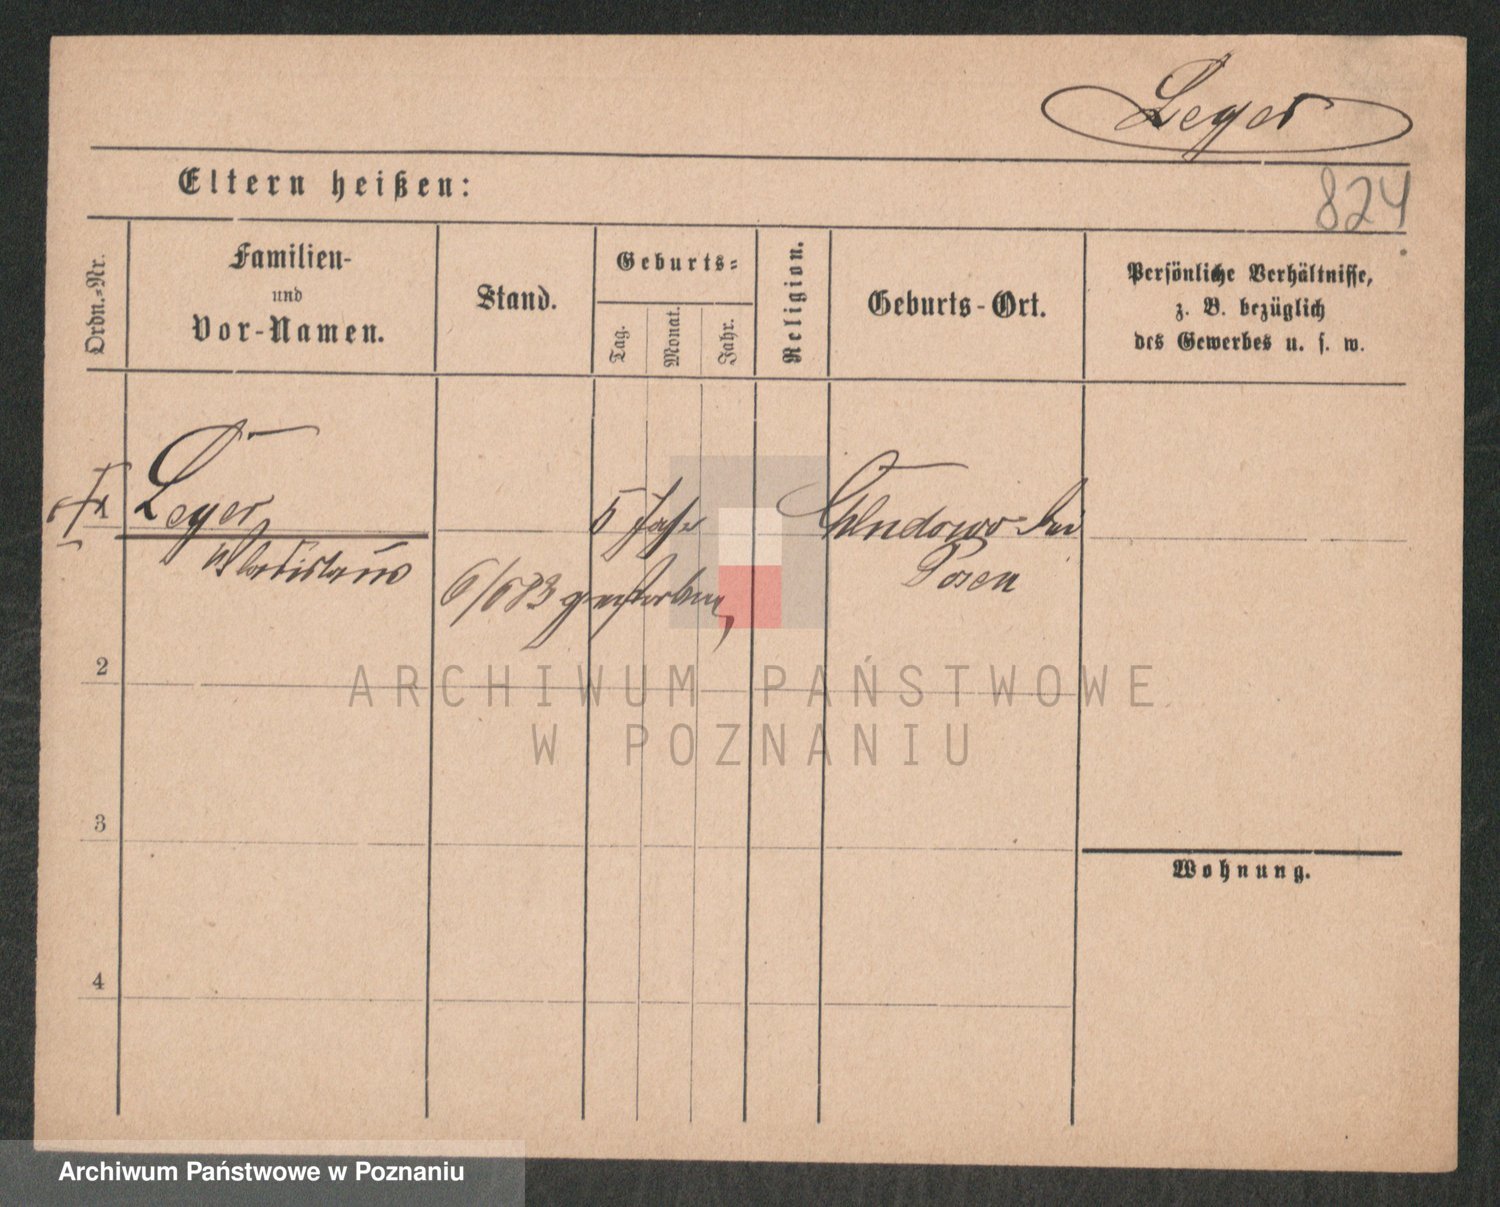 Leyer
824
Eltern heißen:
Ordn.-Nr.
Familien-
und
Vor-Namen.
Stand.
Geburts-
Tag.
Monat.
Jahr.
Religion.
Geburts-Ort.
Persönliche Verhältnisse,
z. B. bezüglich
des Gewerbes u. s. w.
1
Leyer
Wladislaus
5 Jahr
bei
Posen
6/6 83 gestorben,
2
3
4
Wohnung.
ARCHIWUM PAŃSTWOWE
W POZNANIU
Archiwum Państwowe w Poznaniu